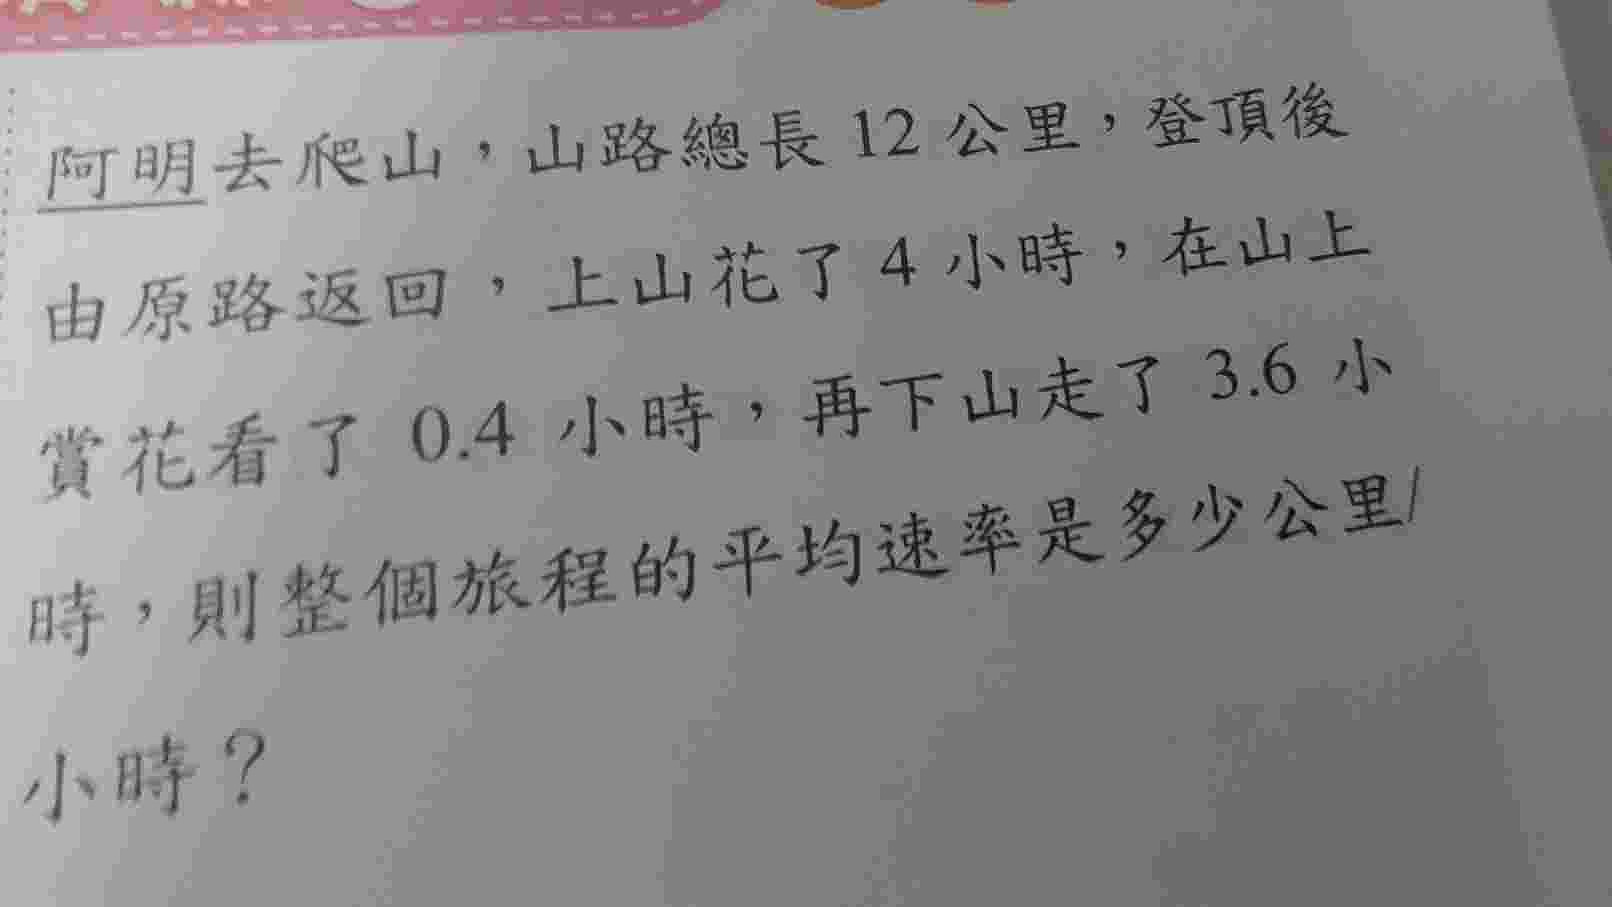 阿明去爬山，山路總長 12 公里，登頂後
由原路返回，上山花了 4 小時，在山上
賞花看了 0.4 小時，再下山走了 3.6 小
時，則整個旅程的平均速率是多少公里/
小時？